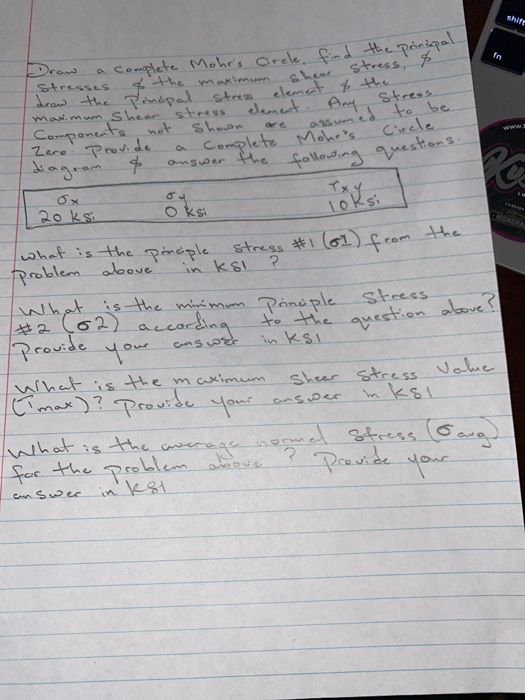 Draw a complete Mohr's Circle, find the principal
stresses & the maximum shear stress, &
draw the Principal stress element & the
maximum shear stress element Any Stress
Components not shown are assumed to be
Zero. Provide a complete Mohr's Circle
diagram & answer the following questions.
σx σy τxy
20 ksi 0 ksi 10 ksi
what is the principle stress #1 (σ1) from the
problem above in KSI ?
What is the minimum Principle Stress
#2 (σ2) according to the question above?
Provide your answer in KSI
What is the maximum Shear Stress Value
(τmax)? Provide your answer in KSI
What is the average normal Stress (σavg)
for the problem above ? Provide your
answer in KSI
shift
fn
www.